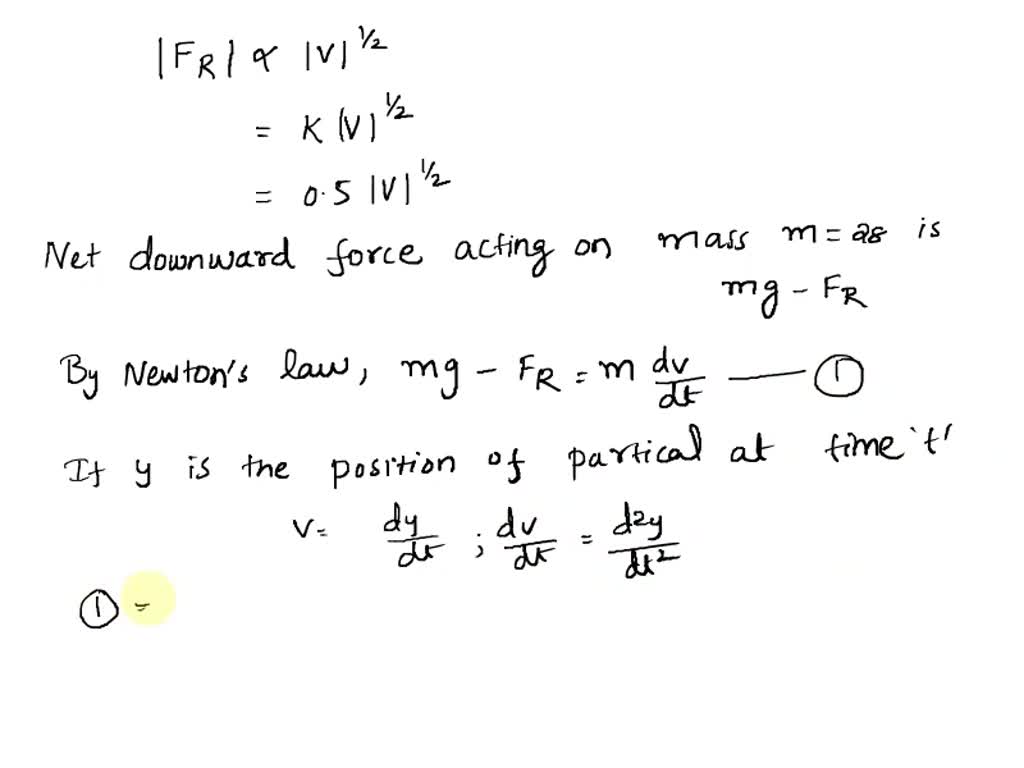 |F_R| ∝ |V|^{1/2}
= K |V|^{1/2}
= 0.5 |V|^{1/2}
Net downward force acting on mass m = 28 is
mg - F_R
By Newton's law, mg - F_R = m dv/dt —— ①
If y is the position of partical at time 't'
V = dy/dt ; dv/dt = d2y/dt²
① =